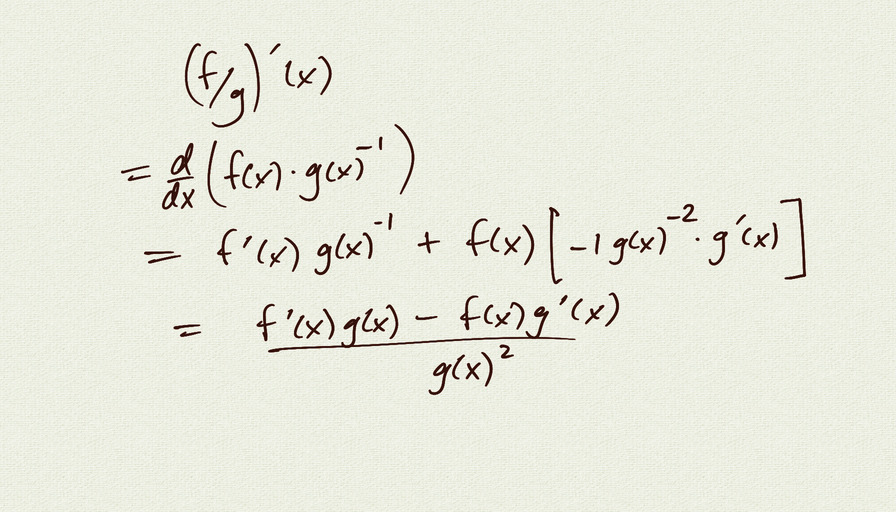 (f/g)′(x)
= d/dx (f(x) · g(x)⁻¹)
= f′(x) g(x)⁻¹ + f(x) [−1 g(x)⁻² · g′(x)]
= f′(x) g(x) − f(x) g′(x)
g(x)²